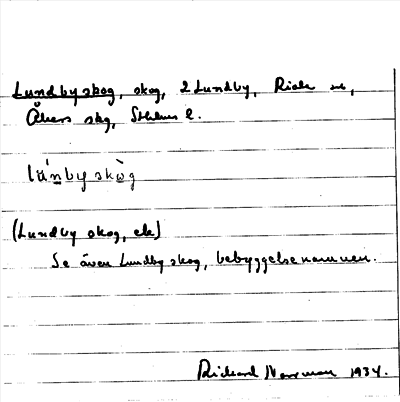 Lundby skog, skog, 2 Lundby, Riala sn,
Åkers skg, Sthlms l.
lúnby skòg
(Lundby skog, ek)
Se även Lundby skog, bebyggelsenamnen.
Richard Norrman 1934.